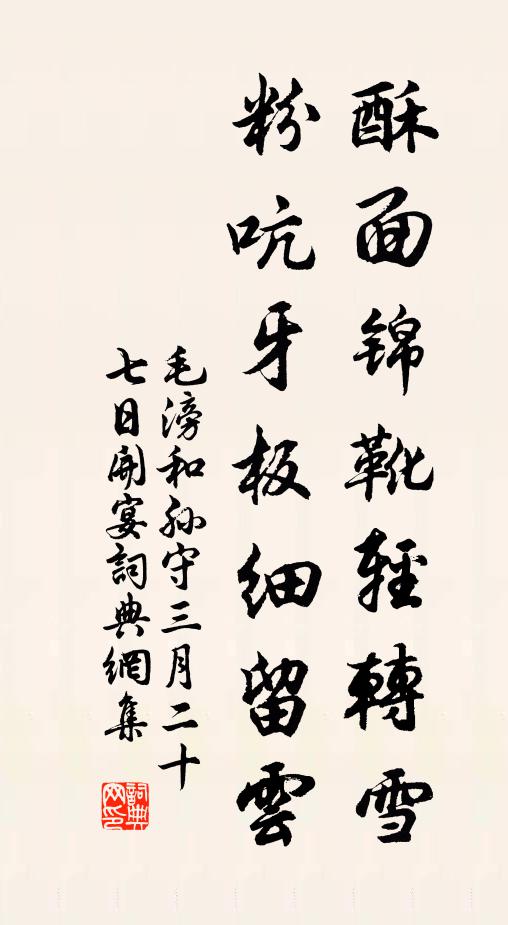 酥面锦靴輕轉雪
粉吭牙板细留雲
毛滂和孙守三月二十
七日開宴詞典網集
詞典网印